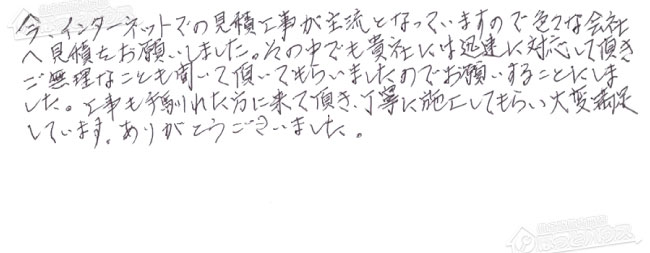 今、インターネットでの見積工事が主流となっていますので色々な会社
へ見積をお願いしました。その中でも貴社には迅速に対応して頂き
ご無理なことも聞いて頂いてもらいましたのでお願いすることにしま
した。工事も手馴れた方に来て頂き、丁寧に施工してもらい大変満足
しています。ありがとうございました。